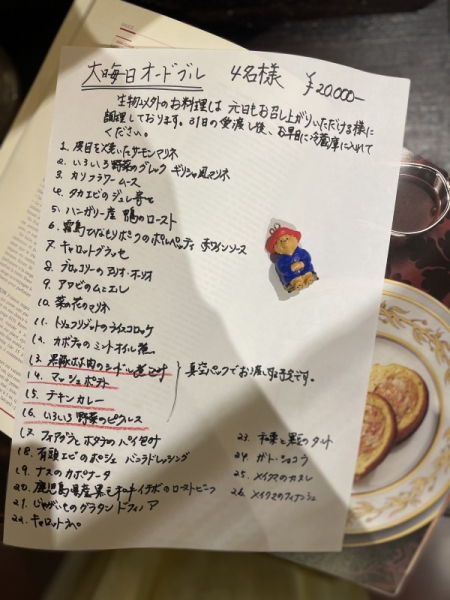 大晦日オードブル 4名様 ¥20,000-
生物以外のお料理は 元日もお召し上がりいただける様に
調理しております。31日の受渡し後、お早目に冷蔵庫に入れて
ください。
1. 炙ったサーモンマリネ
2. いろいろ野菜のグレック ギリシャ風マリネ
3. カリフラワームース
4. タカエビのジュレ寄せ
5. ハンガリー産 鴨のロースト
6. 霧島ひなもりポークのポルペッティ 赤ワインソース
7. キャロットグラッセ
8. ブロッコリーのアーリオ・オーリオ
9. アワビのムニエル
10. 菜の花のマリネ
11. トリュフリゾットのライスコロッケ
12. カボチャのミントオイル煮
13. 黒豚ホホ肉の
14. マッシュポテト
15. チキンカレー
16. いろいろ野菜のピクルス
真空パックでお渡しする予定です。
17. フォアグラとホタテのパイ包み
18. 有頭エビのポシェ バニラドレッシング
19. ナスのカポナータ
20. 鹿児島県産黒毛和牛イチボのローストビーフ
21. じゃがいものグラタン ドフィノア
22. キャロットラペ
23. 黒豆のタルト
24. ガトーショコラ
25. メイクスのカヌレ
26. メイクスのフィナンシェ